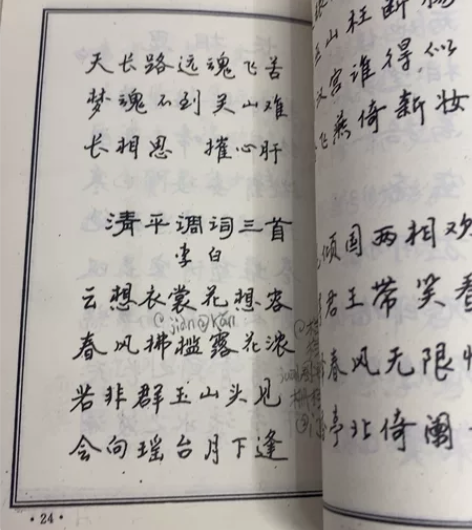 天长路远魂飞苦
梦魂不到关山难
长相思 摧心肝
清平调词三首
李白
云想衣裳花想容
①jiàn②kǎn
春风拂槛露花浓
若非群玉山头见
会向瑶台月下逢
·24·
山枉断
汉宫谁得似
飞燕倚新妆
倾国两相欢
君王带笑看
春风无限恨
亭北倚阑